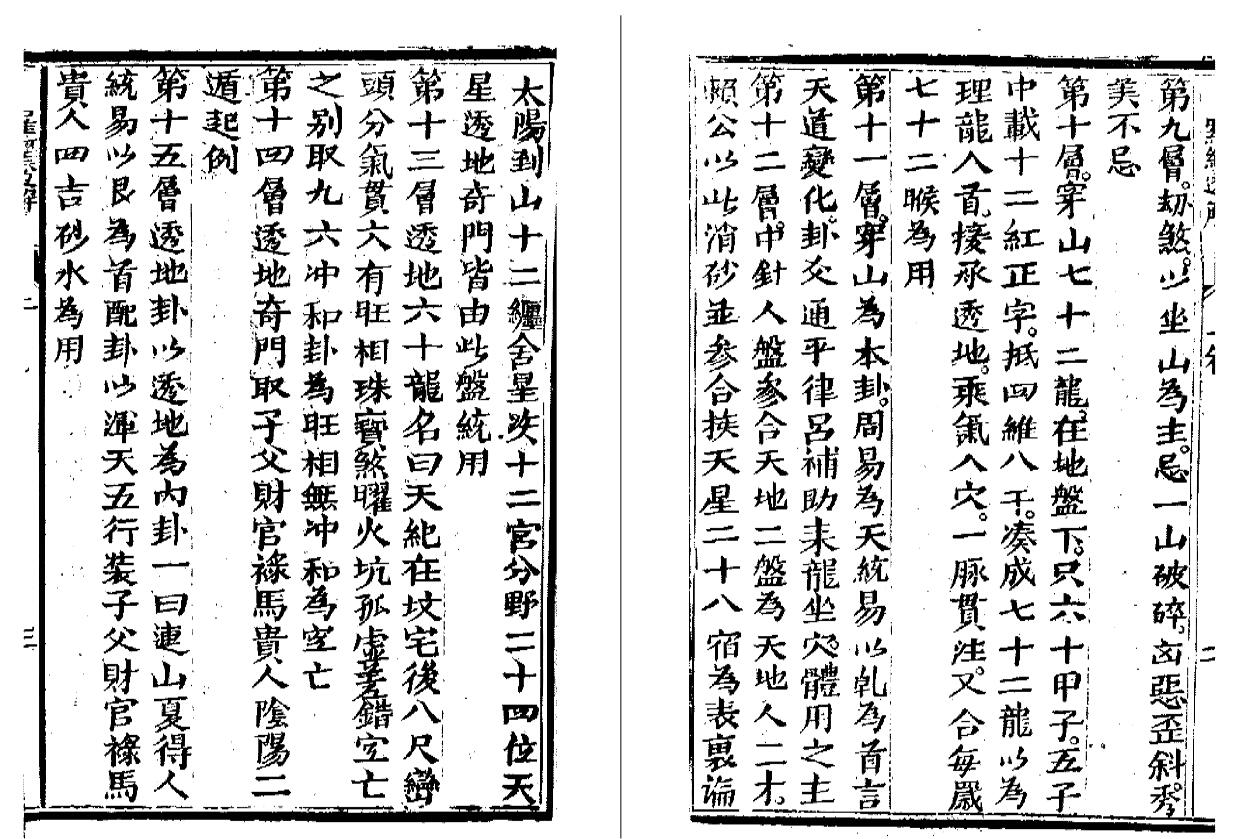 第九層。劫煞。以坐山為主。忌一山破碎。凶惡歪斜。秀
美不忌
第十層。穿山七十二龍。在地盤下。只六十甲子。五子
中載十二紅正字。抵四維八干。湊成七十二龍以為
理龍入首。接承透地。乘氣入穴。一脉貫注。又合每嵗
七十二睺為用
第十一層。穿山為本卦。周易為天統易以乹為首言
天道變化。卦爻通平律呂補助耒龍坐穴。體用之主
第十二層。中針人盤參合天地二盤為天地人二才。
賴公以此消砂並參合挨天星二十八宿為表裏論
太陽到山十二纏舍星次十二宫分野二十四位天
星透地奇門皆由此盤統用
第十三層透地六十龍名曰天紀在坟宅後八尺巒
頭分氣貫穴有旺相珠寶煞曜火坑孤虛差錯空亡
之别取九六冲和卦為旺相無冲和為空亡
第十四層透地奇門取子父財官祿馬貴人陰陽二
遁起例
第十五層透地卦以透地為內卦一曰連山夏得人
統易以艮為首配卦以渾天五行装子父財官祿馬
貴人四吉砂水為用
二
三